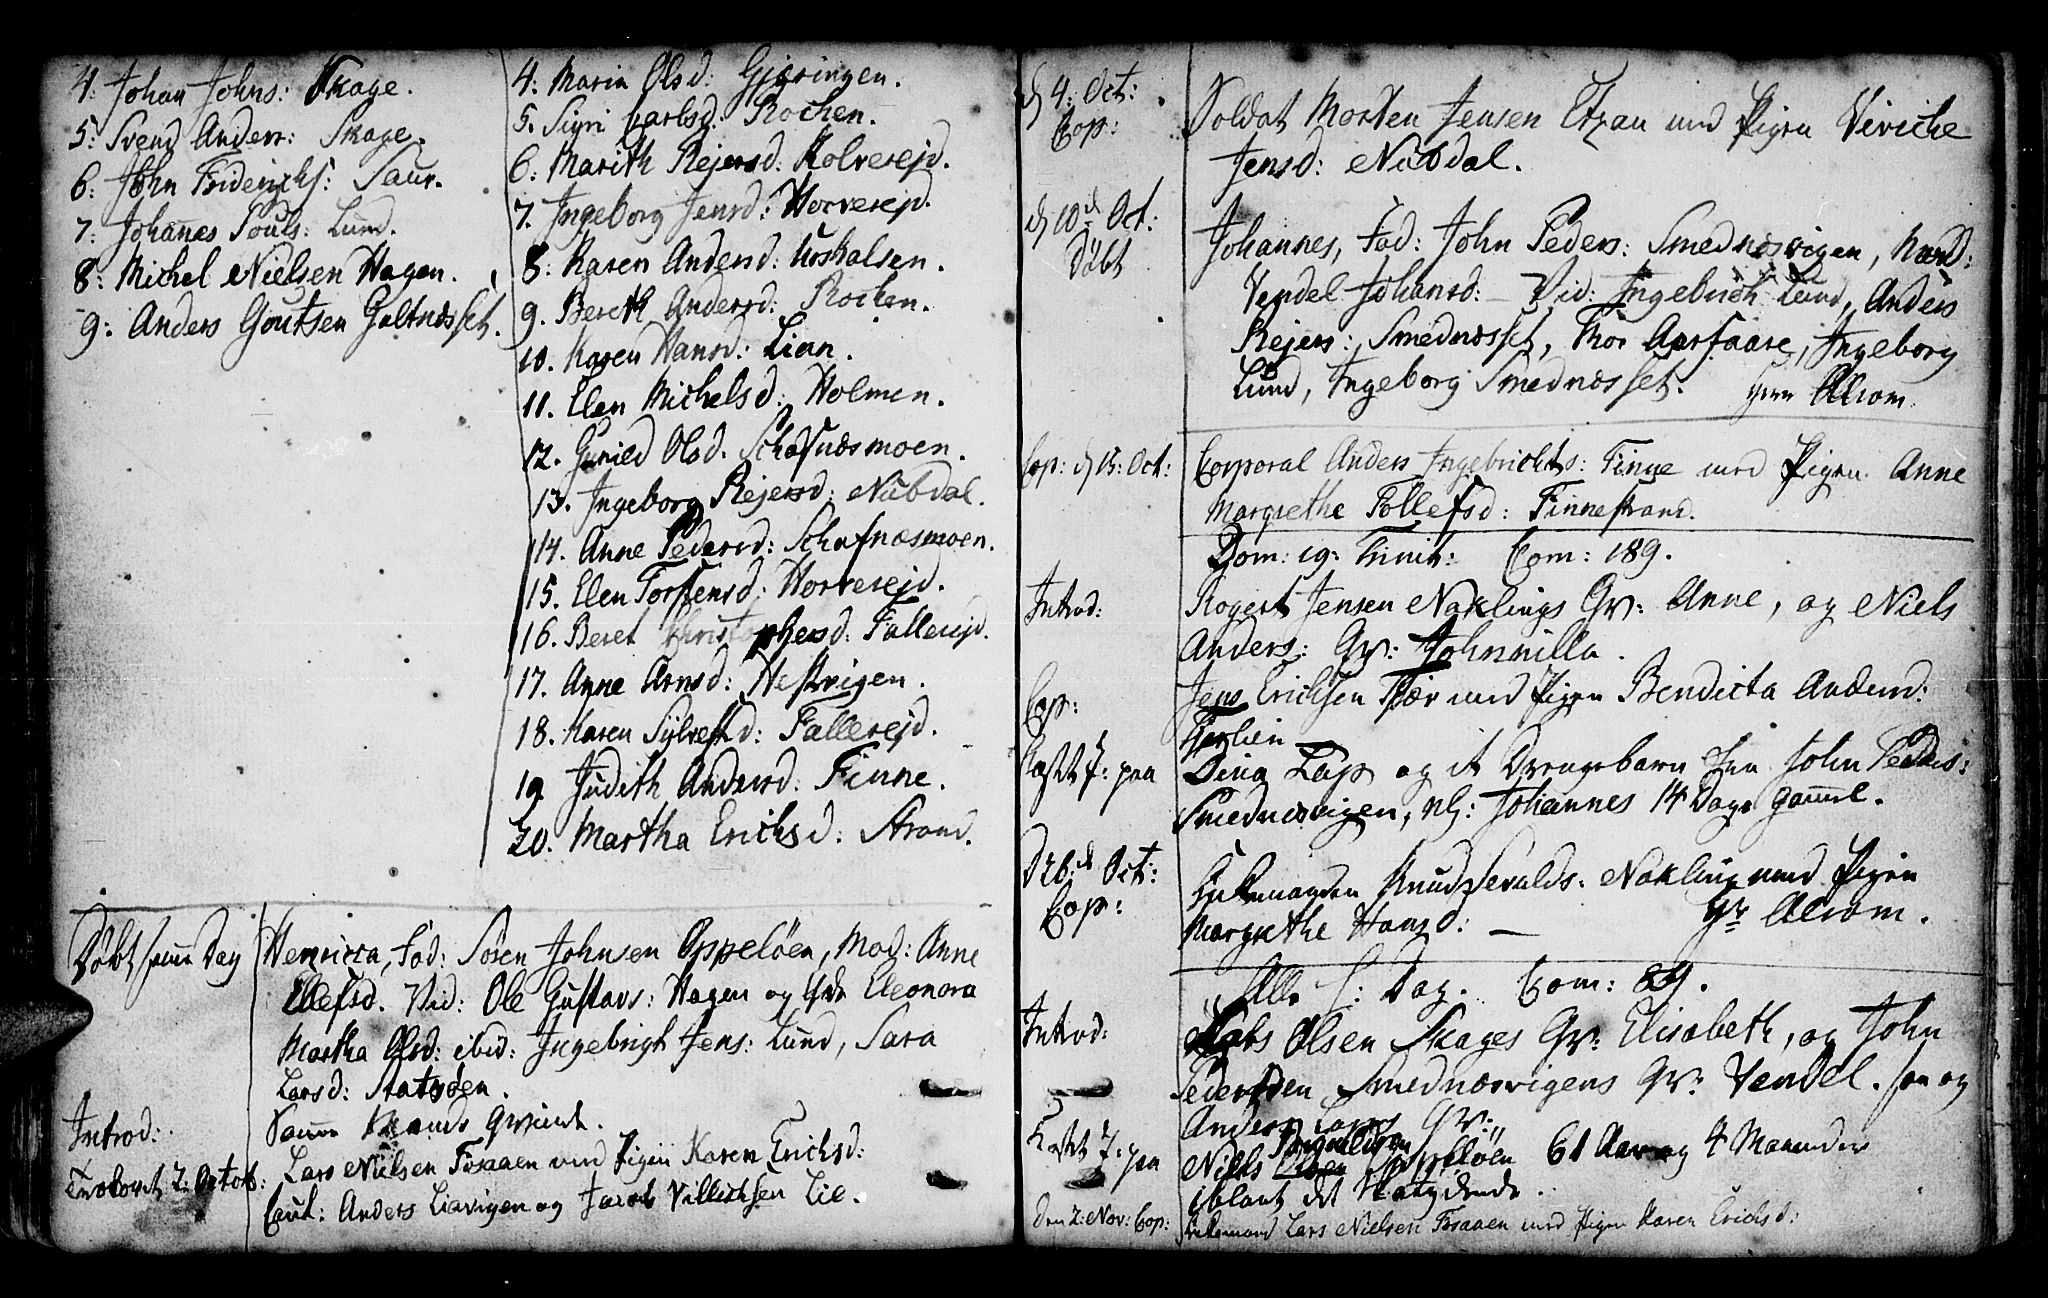 4: Johan Johns: Skage.
5: Svend Anders: Skage.
6: John Friderichs: Saur.
7: Johañes Pouls: Lund.
8: Michel Nielsen Hagen.
9: Anders Goutsen Galtnæsset.
4: Maria Olsd: Gjæringen.
5. Sigri Carlsd: Rochen.
6: Marith Rejersd: Kolverejd.
7. Ingeborg Jensd: Horverejd.
8: Karen Andersd: Urskalsen.
9. Bereth Andersd: Rochen.
10. Karen Hansd: Lian.
11. Elen Michelsd: Holmen.
12. Gunild Olsd. Schafnæsmoen.
13. Ingeborg Rejersd: Nubdal.
14. Anne Pedersd: Schafnæsmoen.
15. Elen Torstensd: Horverejd.
16. Beret Christophersd: Fallerejd.
17. Anne Arnsd: Hestvigen.
18. Karen Sylvestd: Fallerejd.
19 Judith Andersd: Finne.
20. Martha Erichsd: Strand.
Døbt samme Dag
Henricca, Fad: Søren Johnsen Oppeløen, Mod: Anne
Ellefsd. Vid: Ole Gustavs: Hagen og Eleonora
Martha Olsd: ibid: Ingebrigt Jens: Lund, Sara
Larsd: Statsøen.
Introd:
Samme Qvinde.
Trolovet 2: Octob:
Lars Nielsen Fosaaen med Pigen Karen Erichsd:
Caut: Anders Liavigen og Jacob Villichsen Lie.
d 4: Oct:
Cop:
Soldat Morten Jensen med Pigen Viviche
Jensd: Nubdal.
d 10d Oct:
Døbt
Johannes, Fad: John Peders: Smednæsvigen, Mod:
Vendel Johansd: – Vid: Ingebrich Lund, Anders
Rejers: Smednæsset, Thor Aarfaare, Ingeborg
Lund, Ingeborg Smednæsset. Alsom.
Cop: d 15: Oct:
Corporal Anders Ingebrichts: Finne med Pigen Anne
Margrethe Tollefsd: Finnestrand.
Dom: 19: Trinit: Com: 189.
Introd:
Rogert Jensen Naklings Qv: Anne, og Niels
Anders: Qv: Johnnilla.
Cop:
Jens Erichsen med Pigen Bendicta Andersd:
Kastet J: paa
Dina Lap og et Drengebarn fra John Peders:
Smednæsvigen, nl: Johannes 14 Dage gaml.
D 26d Oct:
Cop:
Enkemanden Knud Sevalds: Nakling med Pigen
Margrethe Hansd: – Alsom.
Alle H: Dag. Com: 89.
Introd:
Olsen Skages Qv: Elisabeth, og John
Pedersen Smednæsvigens Qv: Vendel. saa og
Anders Lars Qv:
Kastet J: paa
Niels Oppeløen 61 Aar og 4 Maaneder
iblant det
Den 2: Nov: Cop:
Enkemand Lars Nielsen Fosaaen med Pigen Karen Erichsd: